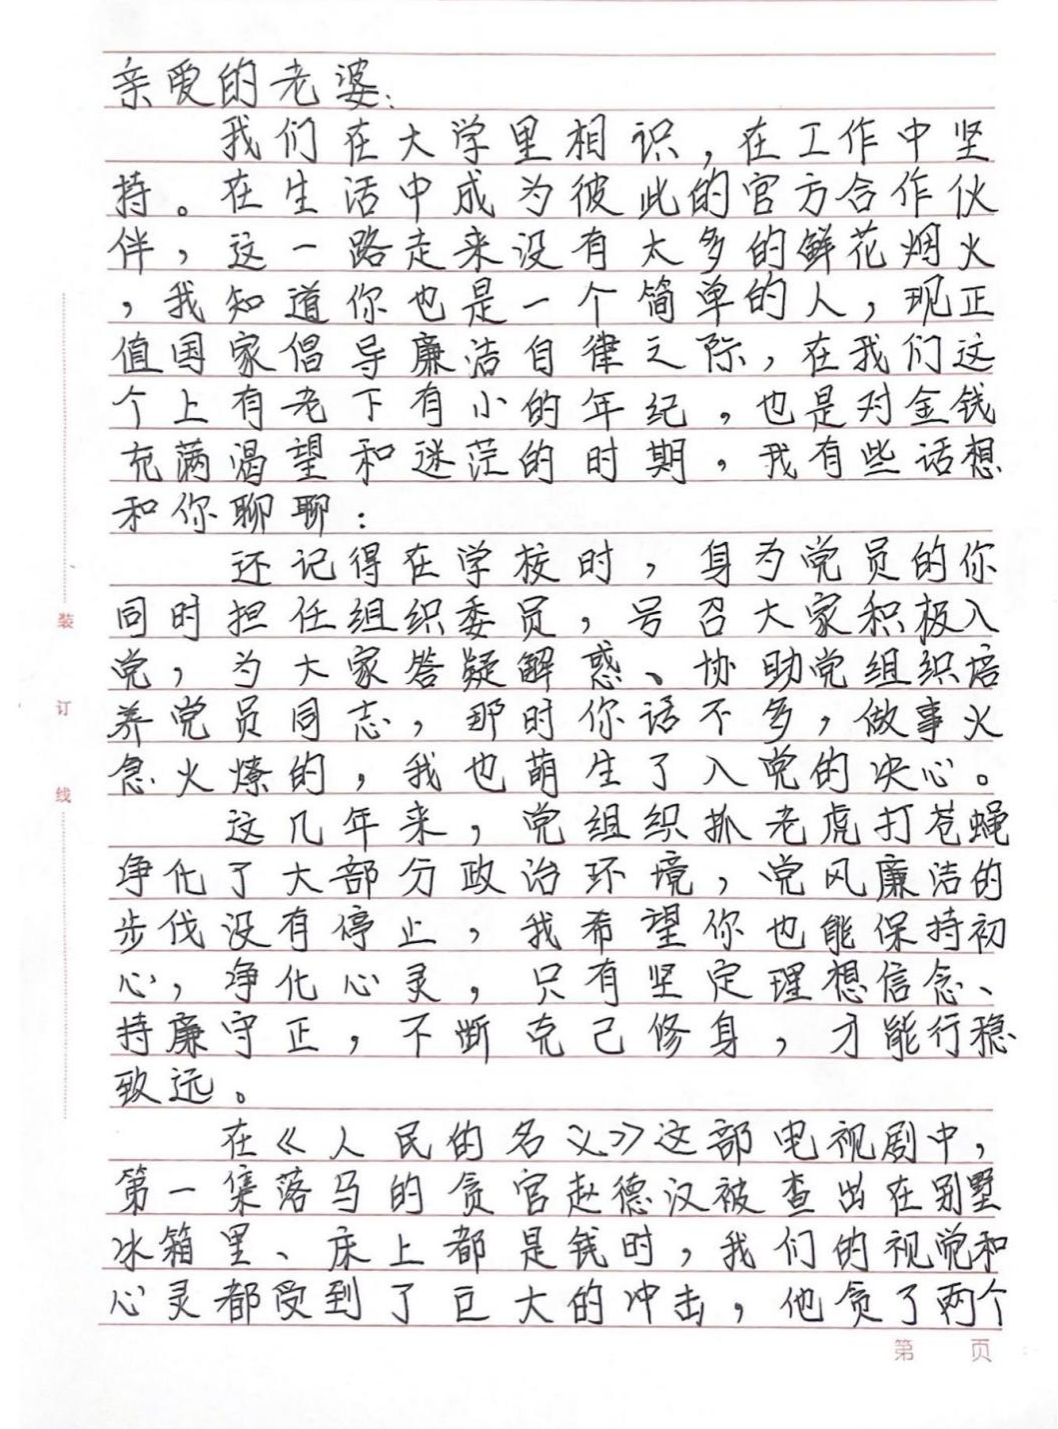 亲爱的老婆：
我们在大学里相识，在工作中坚
持。在生活中成为彼此的官方合作伙
伴，这一路走来没有太多的鲜花烟火
，我知道你也是一个简单的人，现正
值国家倡导廉洁自律之际，在我们这
个上有老下有小的年纪，也是对金钱
充满渴望和迷茫的时期，我有些话想
和你聊聊：
还记得在学校时，身为党员的你
同时担任组织委员，号召大家积极入
党，为大家答疑解惑、协助党组织培
养党员同志，那时你话不多，做事火
急火燎的，我也萌生了入党的决心。
这几年来，党组织抓老虎打苍蝇
净化了大部分政治环境，党风廉洁的
步伐没有停止，我希望你也能保持初
心，净化心灵，只有坚定理想信念、
持廉守正，不断克己修身，才能行稳
致远。
在《人民的名义》这部电视剧中，
第一集落马的贪官赵德汉被查出在别墅
冰箱里、床上都是钱时，我们的视觉和
心灵都受到了巨大的冲击，他贪了两个
装
订
线
第 页